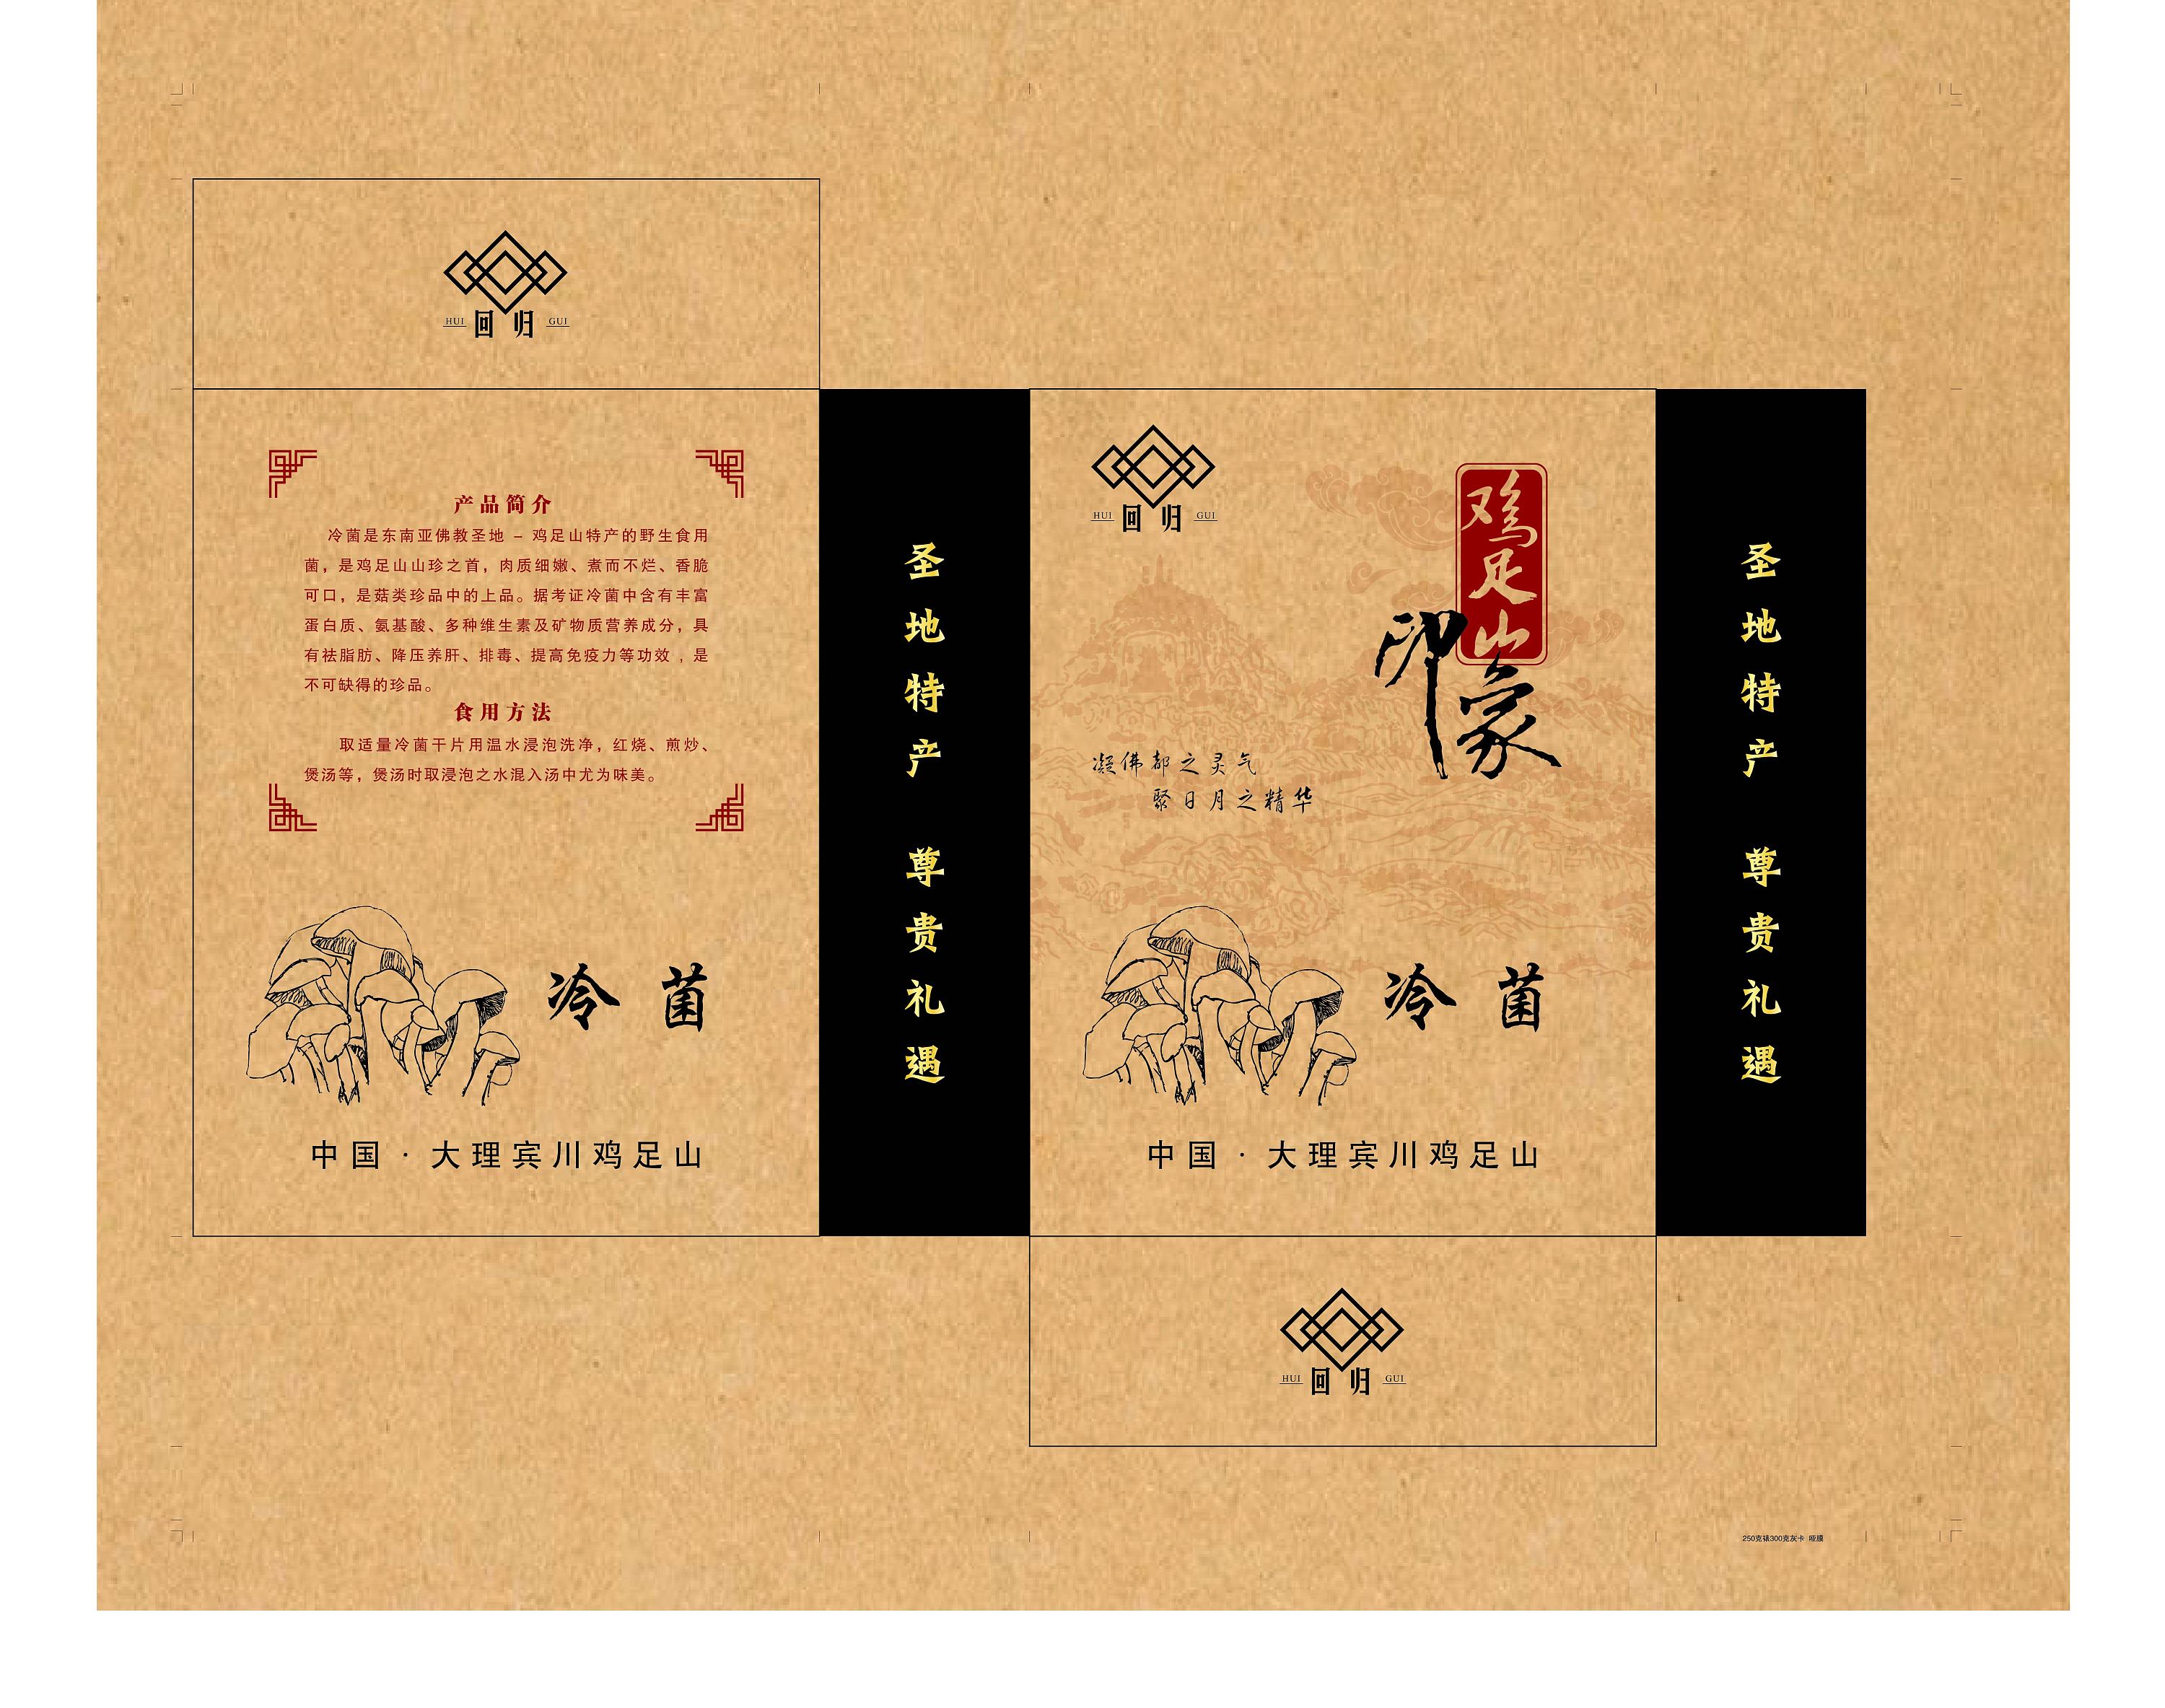 HUI 回归 GUI
产品简介
冷菌是东南亚佛教圣地 – 鸡足山特产的野生食用
菌，是鸡足山山珍之首，肉质细嫩、煮而不烂、香脆
可口，是菇类珍品中的上品。据考证冷菌中含有丰富
蛋白质、氨基酸、多种维生素及矿物质营养成分，具
有祛脂肪、降压养肝、排毒、提高免疫力等功效，是
不可缺得的珍品。
食用方法
取适量冷菌干片用温水浸泡洗净，红烧、煎炒、
煲汤等，煲汤时取浸泡之水混入汤中尤为味美。
冷菌
中国·大理宾川鸡足山
圣地特产 尊贵礼遇
HUI 回归 GUI
鸡足山
印象
凝佛都之灵气
聚日月之精华
冷菌
中国·大理宾川鸡足山
圣地特产 尊贵礼遇
HUI 回归 GUI
250克裱300克灰卡 哑膜